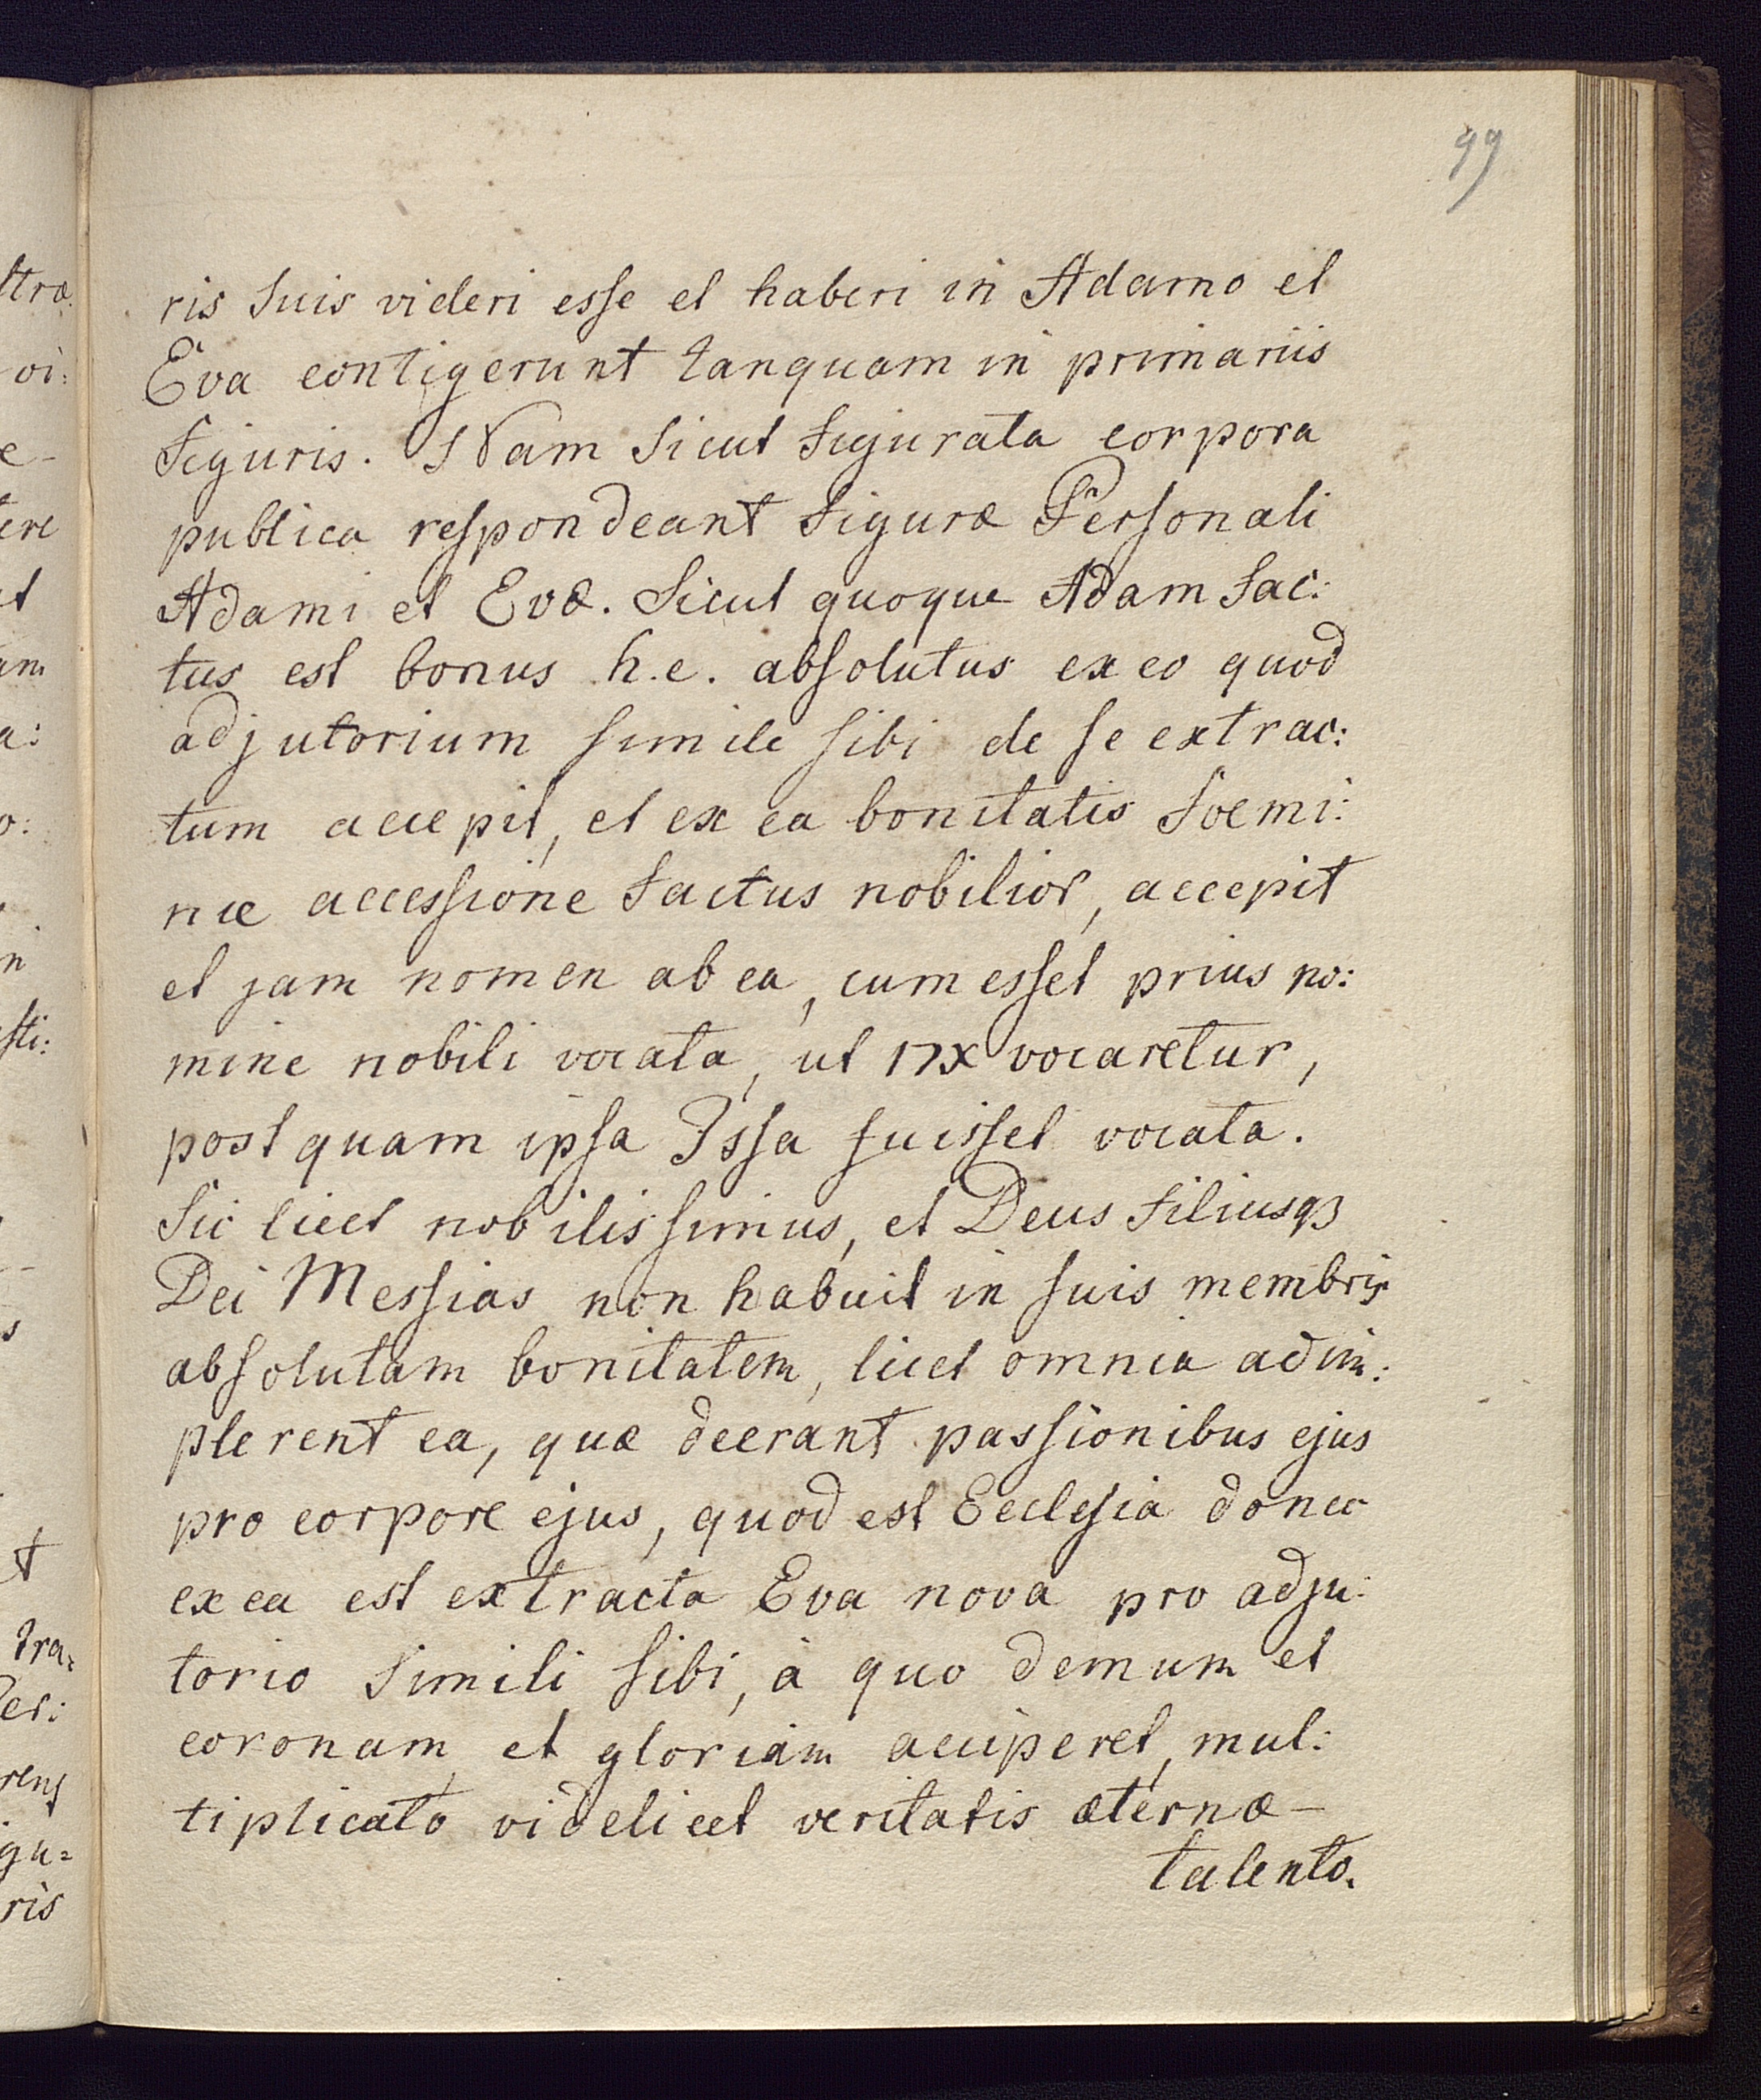 99
ris suis videri esse et haberi in Adamo et
Eva contigerunt tanquam in primariis
Figuris. Nam sicut figurata corpora
publica respondeant Figuræ Personali
Adami et Evæ. Sicut quoque Adam fac:
tus est bonus h.e. absolutus ex eo quod
adjutorium simile sibi de se extrac:
tum accepit, et ex ea bonitatis foemi:
næ accessione factus nobilior, accepit
et jam nomen ab ea, cum esset prius no:
mine nobili vocata, ut vocaretur,
postquam ipsa Issa fuisset vocata.
Sic licet nobilissimus, et Deus Filiusqꝫ
Dei Messias non habuit in suis membris
absolutam bonitatem, licet omnia adim:
plerent ea, quæ deerant passionibus ejus
pro corpore ejus, quod est Ecclesia donec
ex ea est extracta Eva nova pro adju:
torio simili sibi, à quo demum et
coronam et gloriam acciperet, mul:
tiplicato videlicet veritatis æternæ-
talento.
ou:
tere
am
a:
o:
n
sti:
s
t
tra=
rens
gu=
ris